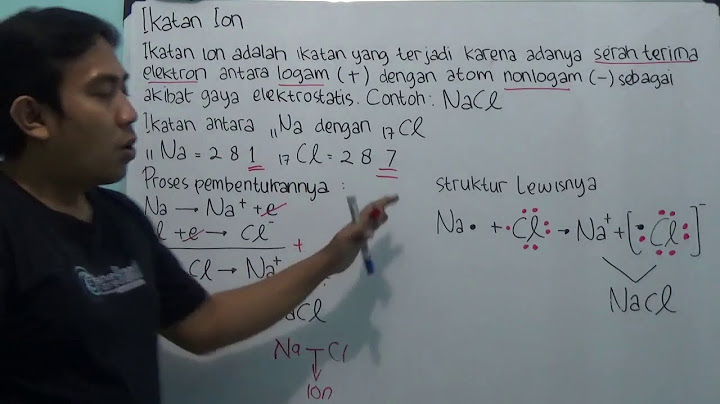 Ikatan Ion
Ikatan ion adalah ikatan yang terjadi karena adanya serah terima
elektron antara logam (+) dengan atom nonlogam (-) sebagai
akibat gaya elektrostatis. Contoh: NaCl
Ikatan antara ₁₁Na dengan ₁₇Cl
₁₁Na = 2 8 1 ₁₇Cl = 2 8 7
Proses pembentukannya :
Na → Na⁺ + e
+ e → Cl⁻
+
Cl → Na⁺
Na - Cl
Ion
struktur Lewisnya
Na• + •Cl → Na⁺ + [•Cl]⁻
NaCl